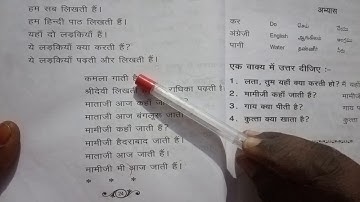 हम सब लिखती हैं।
हम हिन्दी पाठ लिखती हैं।
यहाँ दो लड़कियाँ हैं।
ये लड़कियाँ क्या करती हैं?
ये लड़कियाँ पढ़ती और लिखती हैं।
कमला गाती है
श्रीदेवी लिखती राधिका पढ़ती
माताजी आज कहाँ जाती
माताजी आज बंगलूरु जाती
मामीजी कहाँ जाती हैं?
मामीजी हैदराबाद जाती हैं।
माताजी आज जाती हैं।
मामीजी भी आज जाती हैं।
* * *
24
अभ्यास
कर Do செய்
अंग्रेजी English ஆங்கிலம்
पानी Water தண்ணீர்
एक वाक्य में उत्तर दीजिए :-
1. लता, तुम यहाँ क्या करती हो? मैं यहाँ
2. मामीजी कहाँ जाती हैं? मामीजी
3. गाय क्या पीती है? गाय
4. कुत्ता क्या खाता है? कुत्ता